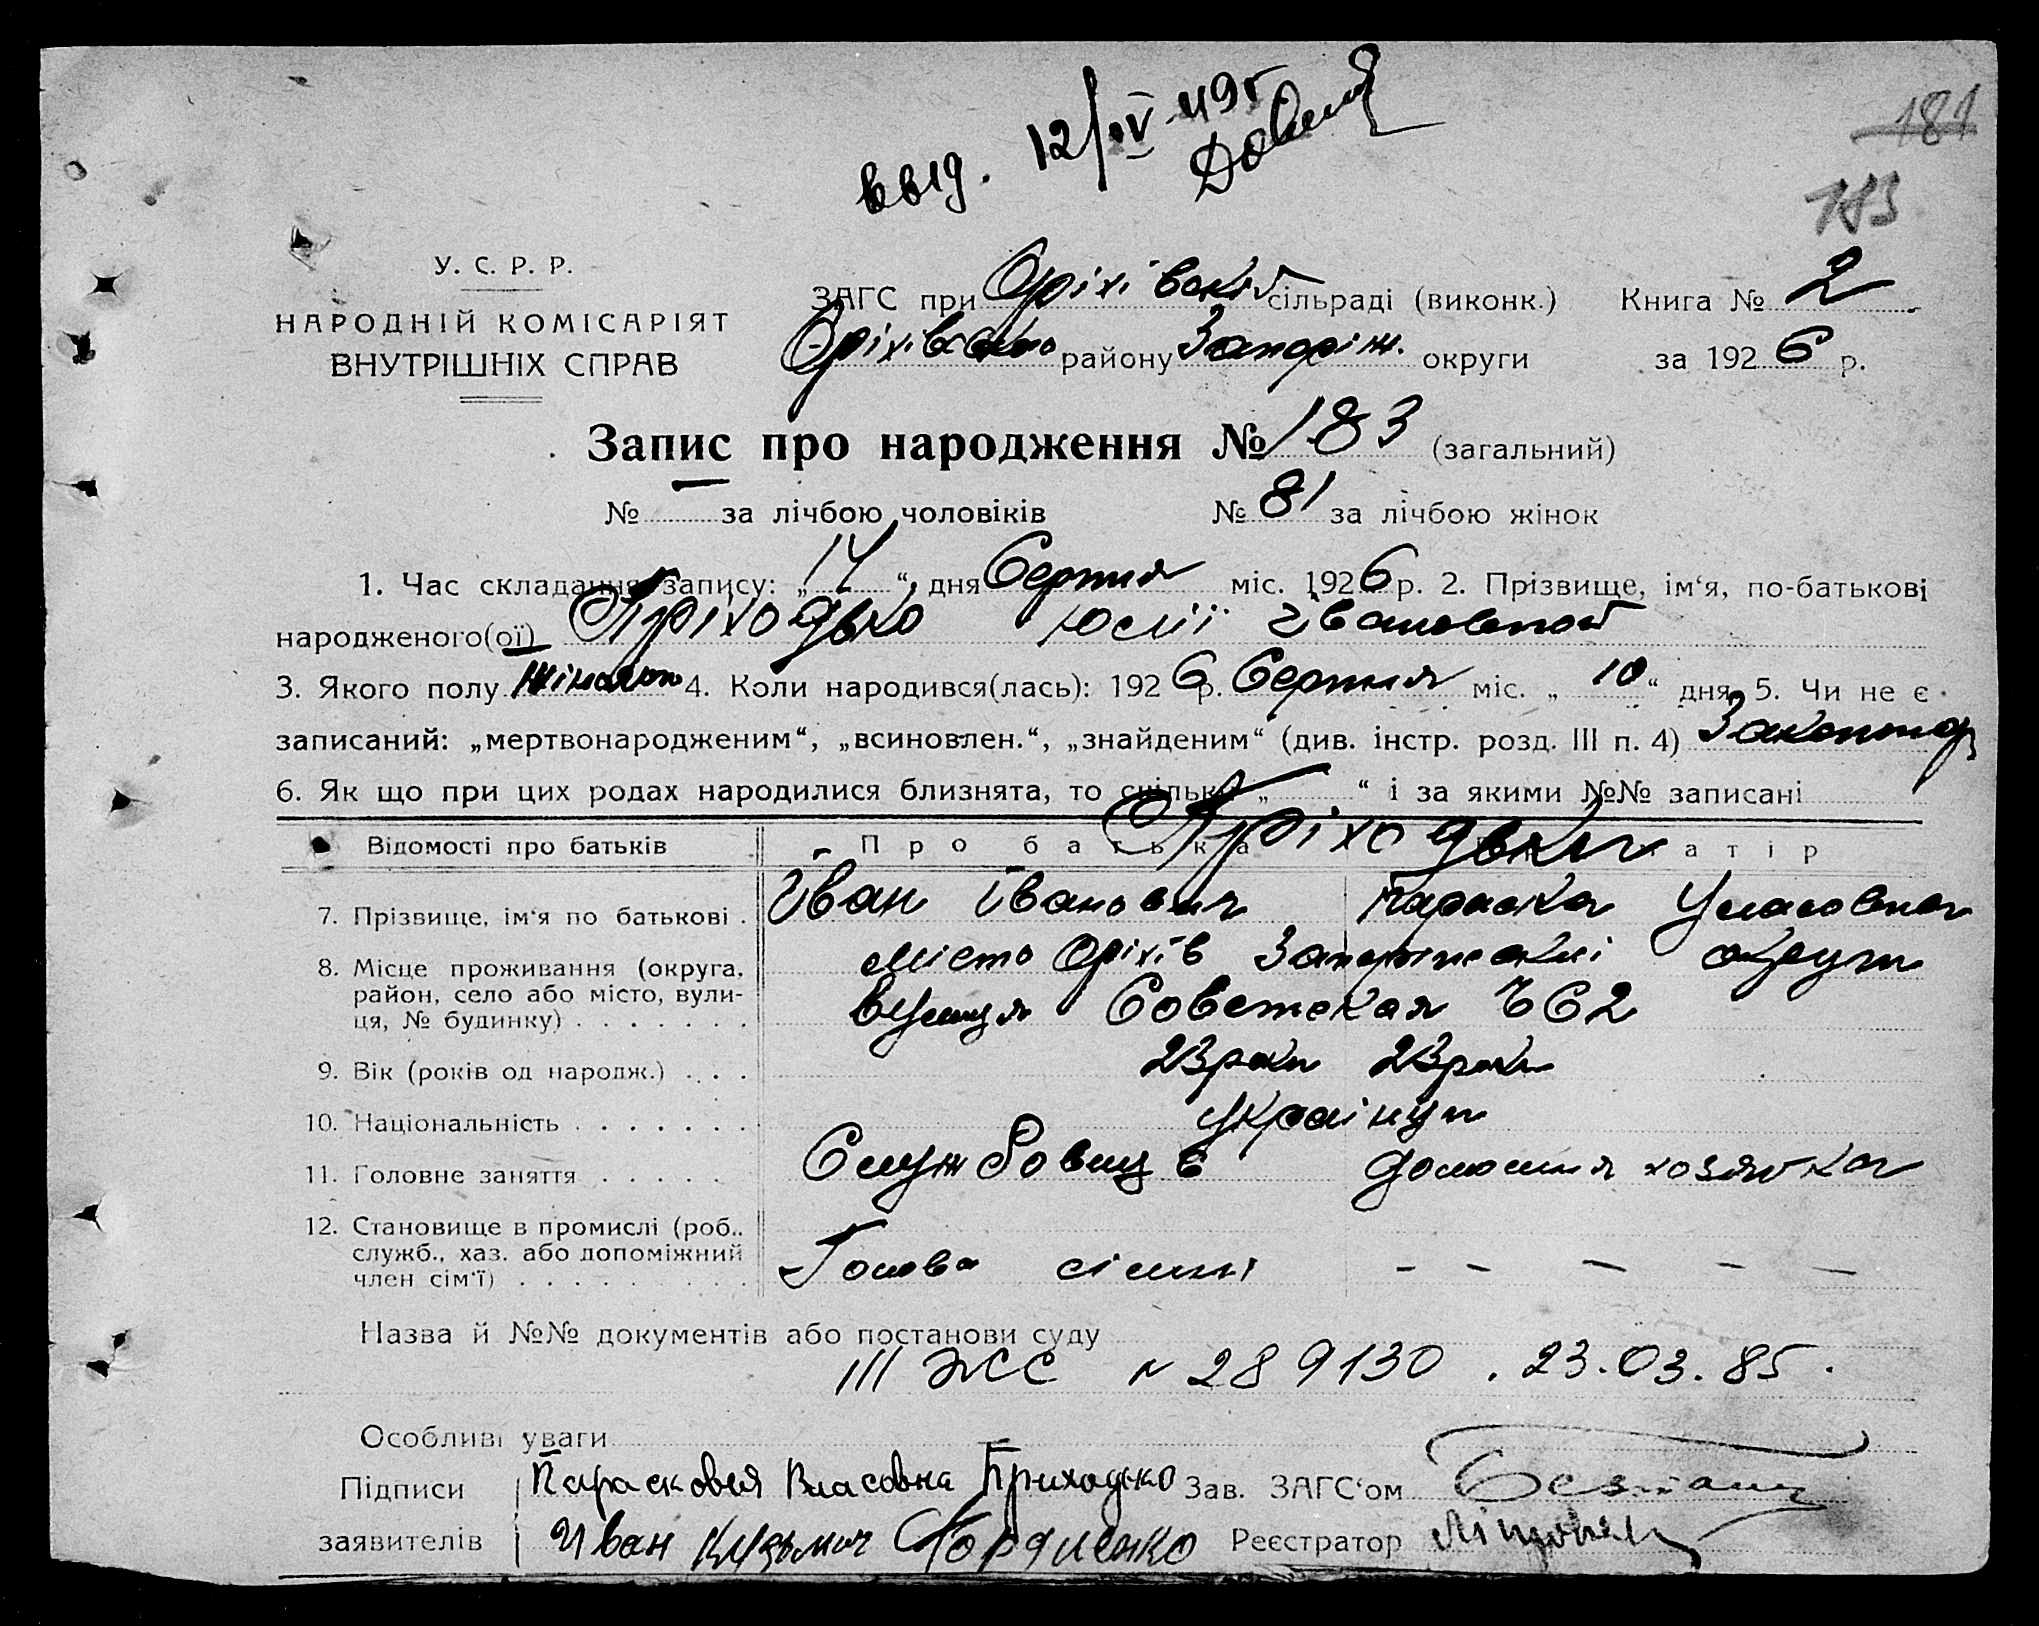 выд. 12/IV-49г
181
183
У. С. Р. Р.
НАРОДНІЙ КОМІСАРІЯТ
ВНУТРІШНІХ СПРАВ
ЗАГС при Оріхівській сільраді (виконк.) Книга № 2
Оріхівського району Запоріж. округи за 1926 р.
Запис про народження № 183 (загальний)
№ — за лічбою чоловіків № 81 за лічбою жінок
1. Час складання запису: „14“ дня Серпня міс. 1926 р. 2. Прізвище, ім'я, по-батькові
народженого(ої) Пріходько Юлії Івановной
3. Якого полу Жіночого 4. Коли народився(лась): 1926 р. Серпня міс. „10“ дня 5. Чи не є
записаний: „мертвонародженим“, „всиновлен.“, „знайденим“ (див. інстр. розд. III п. 4)
6. Як що при цих родах народилися близнята, то скільки „ “ і за якими №№ записані
Відомості про батьків Про батька Про матір
Пріходьки
7. Прізвище, ім'я по батькові . Іван Іванович Параска Уласовна
8. Місце проживання (округа, місто Оріхів Запоріжськ��ї округи
район, село або місто, вули-
ця, № будинку) . . . . . . . вулиця Советская № 62
9. Вік (років од народж.) . . . 23 роки 23 роки
10. Національність . . . . . . . українци
11. Головне заняття . . . . . Службовець домашня хозяйка
12. Становище в промислі (роб.,
служб., хаз. або допоміжний
член сім'ї) . . . . . . . . . Голова сімьі - - - - -
Назва й №№ документів або постанови суду
III ЖС № 289130 . 23.03.85.
Особливі уваги
Підписи Парасковья Власовна Приходько Зав. ЗАГС'ом
заявителів Иван Кузьмич Гордиенко Реєстратор